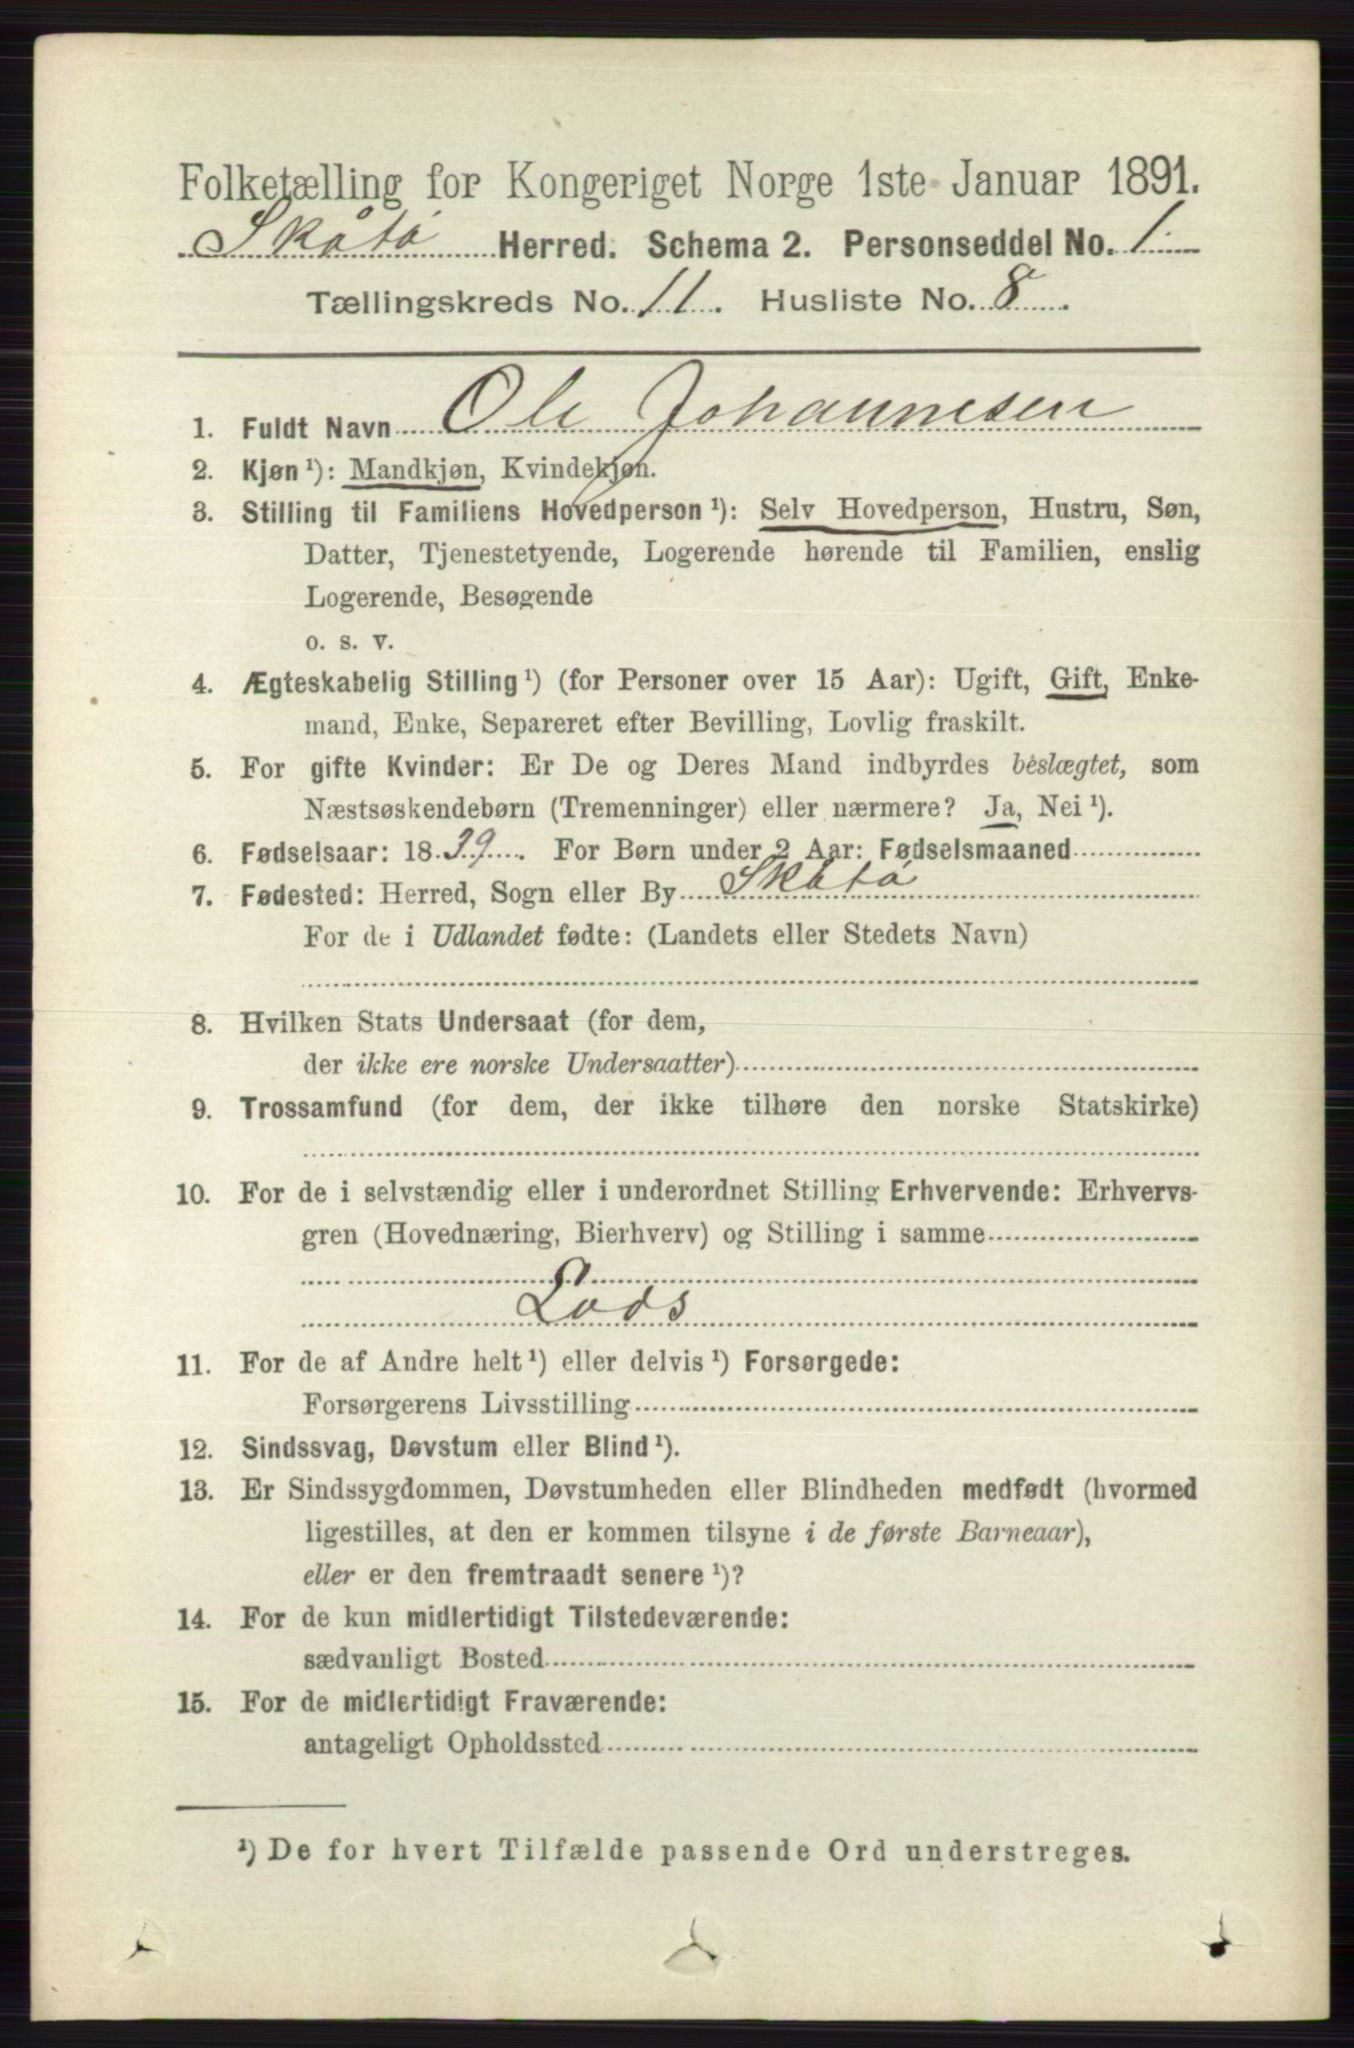 Folketælling for Kongeriget Norge 1ste Januar 1891.
Skåtø Herred. Schema 2. Personseddel No. 1.
Tællingskreds No. 11. Husliste No. 8.
1. Fuldt Navn Ole Johannesen
2. Kjøn¹): Mandkjøn, Kvindekjøn.
3. Stilling til Familiens Hovedperson¹): Selv Hovedperson, Hustru, Søn,
Datter, Tjenestetyende, Logerende hørende til Familien, enslig
Logerende, Besøgende
o. s. v.
4. Ægteskabelig Stilling¹) (for Personer over 15 Aar): Ugift, Gift, Enke-
mand, Enke, Separeret efter Bevilling, Lovlig fraskilt.
5. For gifte Kvinder: Er De og Deres Mand indbyrdes beslægtet, som
Næstsøskendebørn (Tremenninger) eller nærmere? Ja, Nei¹).
6. Fødselsaar: 1839. For Børn under 2 Aar: Fødselsmaaned
7. Fødested: Herred, Sogn eller By Skåtø
For de i Udlandet fødte: (Landets eller Stedets Navn)
8. Hvilken Stats Undersaat (for dem,
der ikke ere norske Undersaatter)
9. Trossamfund (for dem, der ikke tilhøre den norske Statskirke)
10. For de i selvstændig eller i underordnet Stilling Erhvervende: Erhvervs-
gren (Hovednæring, Bierhverv) og Stilling i samme
Lods
11. For de af Andre helt¹) eller delvis¹) Forsørgede:
Forsørgerens Livsstilling
12. Sindssvag, Døvstum eller Blind¹).
13. Er Sindssygdommen, Døvstumheden eller Blindheden medfødt (hvormed
ligestilles, at den er kommen tilsyne i de første Barneaar),
eller er den fremtraadt senere¹)?
14. For de kun midlertidigt Tilstedeværende:
sædvanligt Bosted
15. For de midlertidigt Fraværende:
antageligt Opholdssted
¹) De for hvert Tilfælde passende Ord understreges.